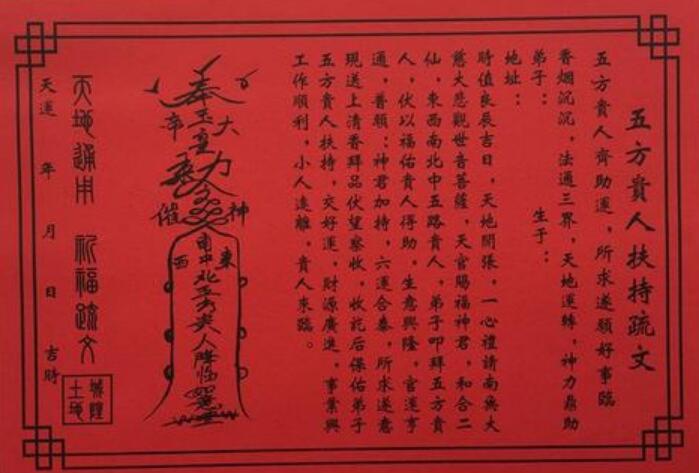 五方貴人扶持疏文
五方貴人齊助運，所求遂願好事臨
香烟沉沉，法通三界，天地運轉，神力鼎助
弟子：　　　　生于：
地址：
時值良辰吉日，天地開張，一心禮請南無大
慈大悲觀世音菩薩，天官賜福神君，和合二
仙，東西南北中五路貴人，弟子叩拜五方貴
人，伏以福佑貴人得助，生意興隆，官運亨
通，普願：神君加持，六運合泰，所求遂意
現送上清香拜品伏望察收，收訖后保佑弟子
五方貴人扶持，交好運，財源廣進，事業興
工作順利，小人遠離，貴人來臨。
奉玉皇
大帝
神催
東西南北中五方貴人降臨
天地通用　祈福疏文
天運　年　月　日　吉時
城隍
土地